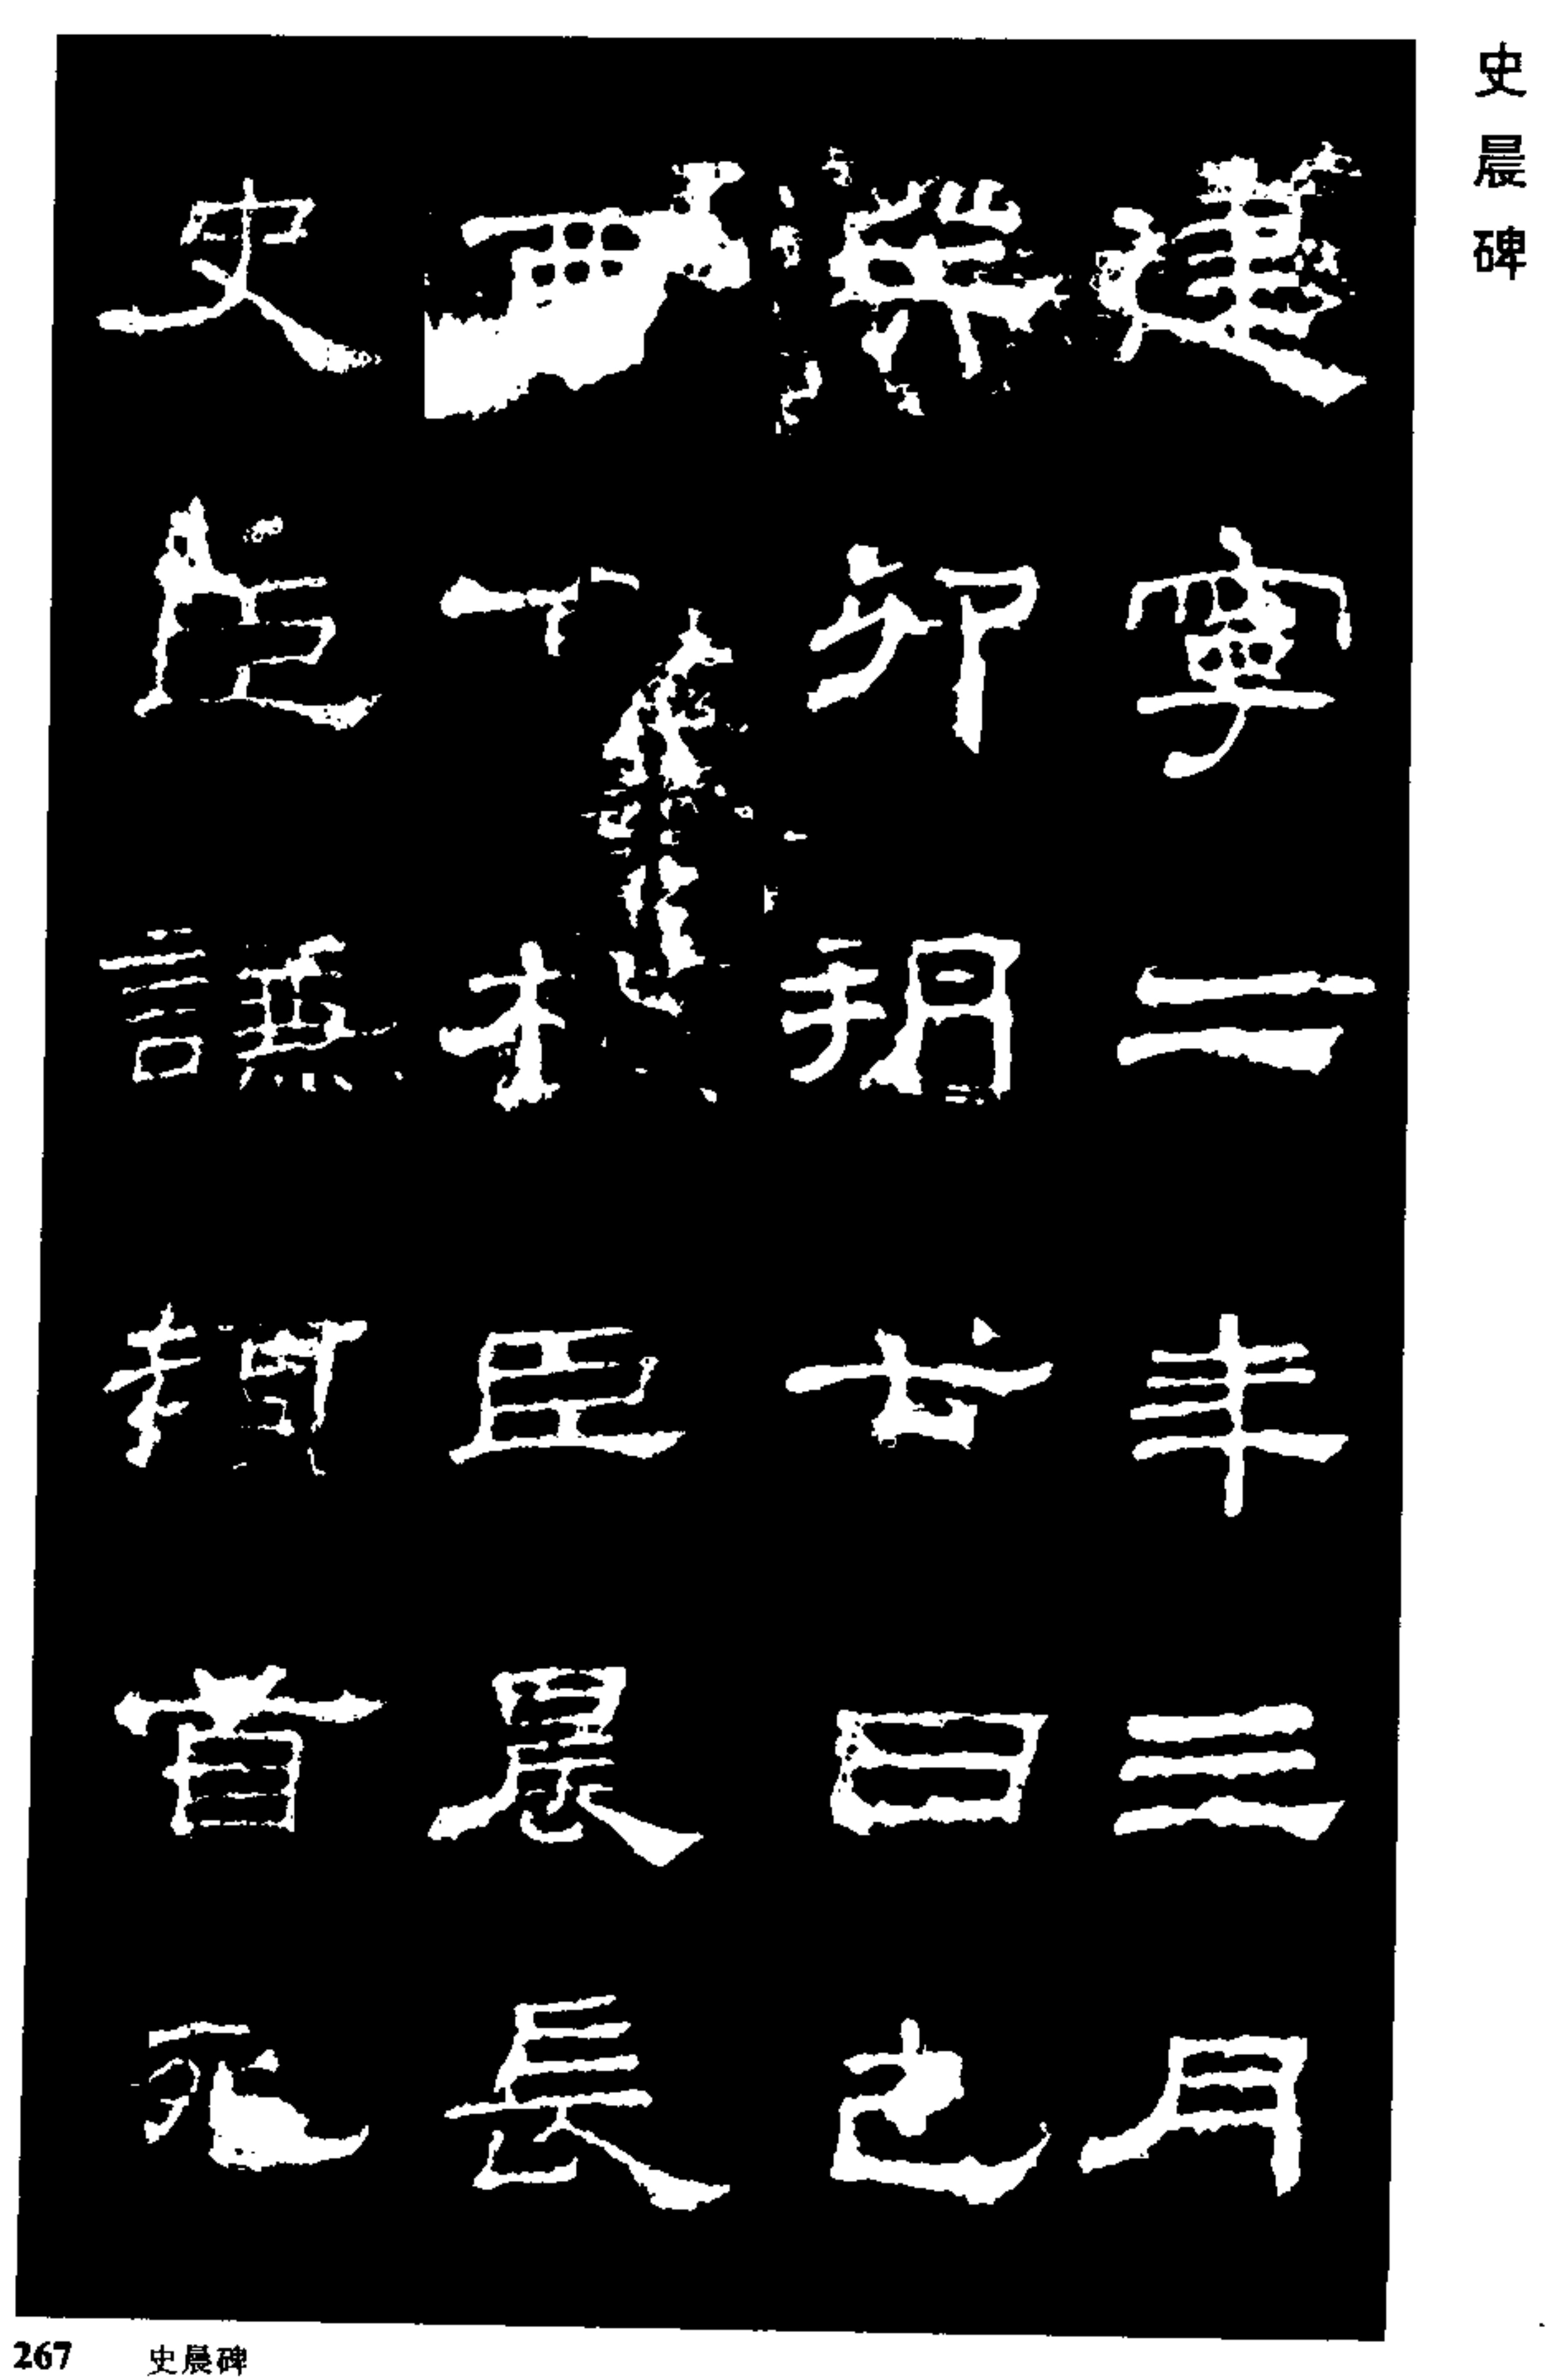 史晨碑
建寧二年三月
癸卯朔七日己
酉相臣晨長
史臣謙頓首死
267 史晨碑